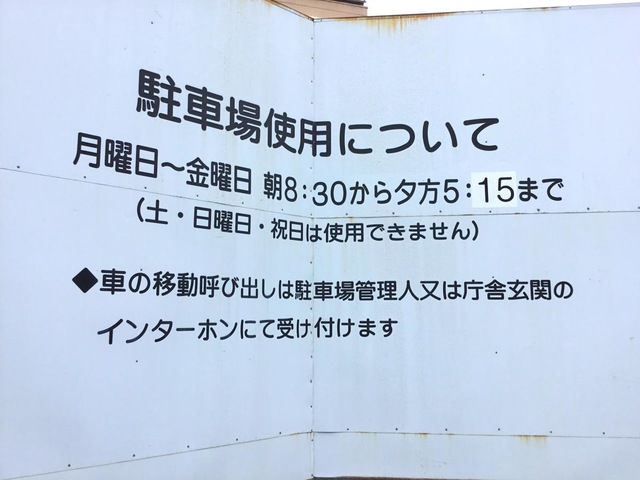 駐車場使用について
月曜日～金曜日 朝8:30から夕方5:15まで
(土・日曜日・祝日は使用できません)
◆車の移動呼び出しは駐車場管理人又は庁舎玄関の
インターホンにて受け付けます